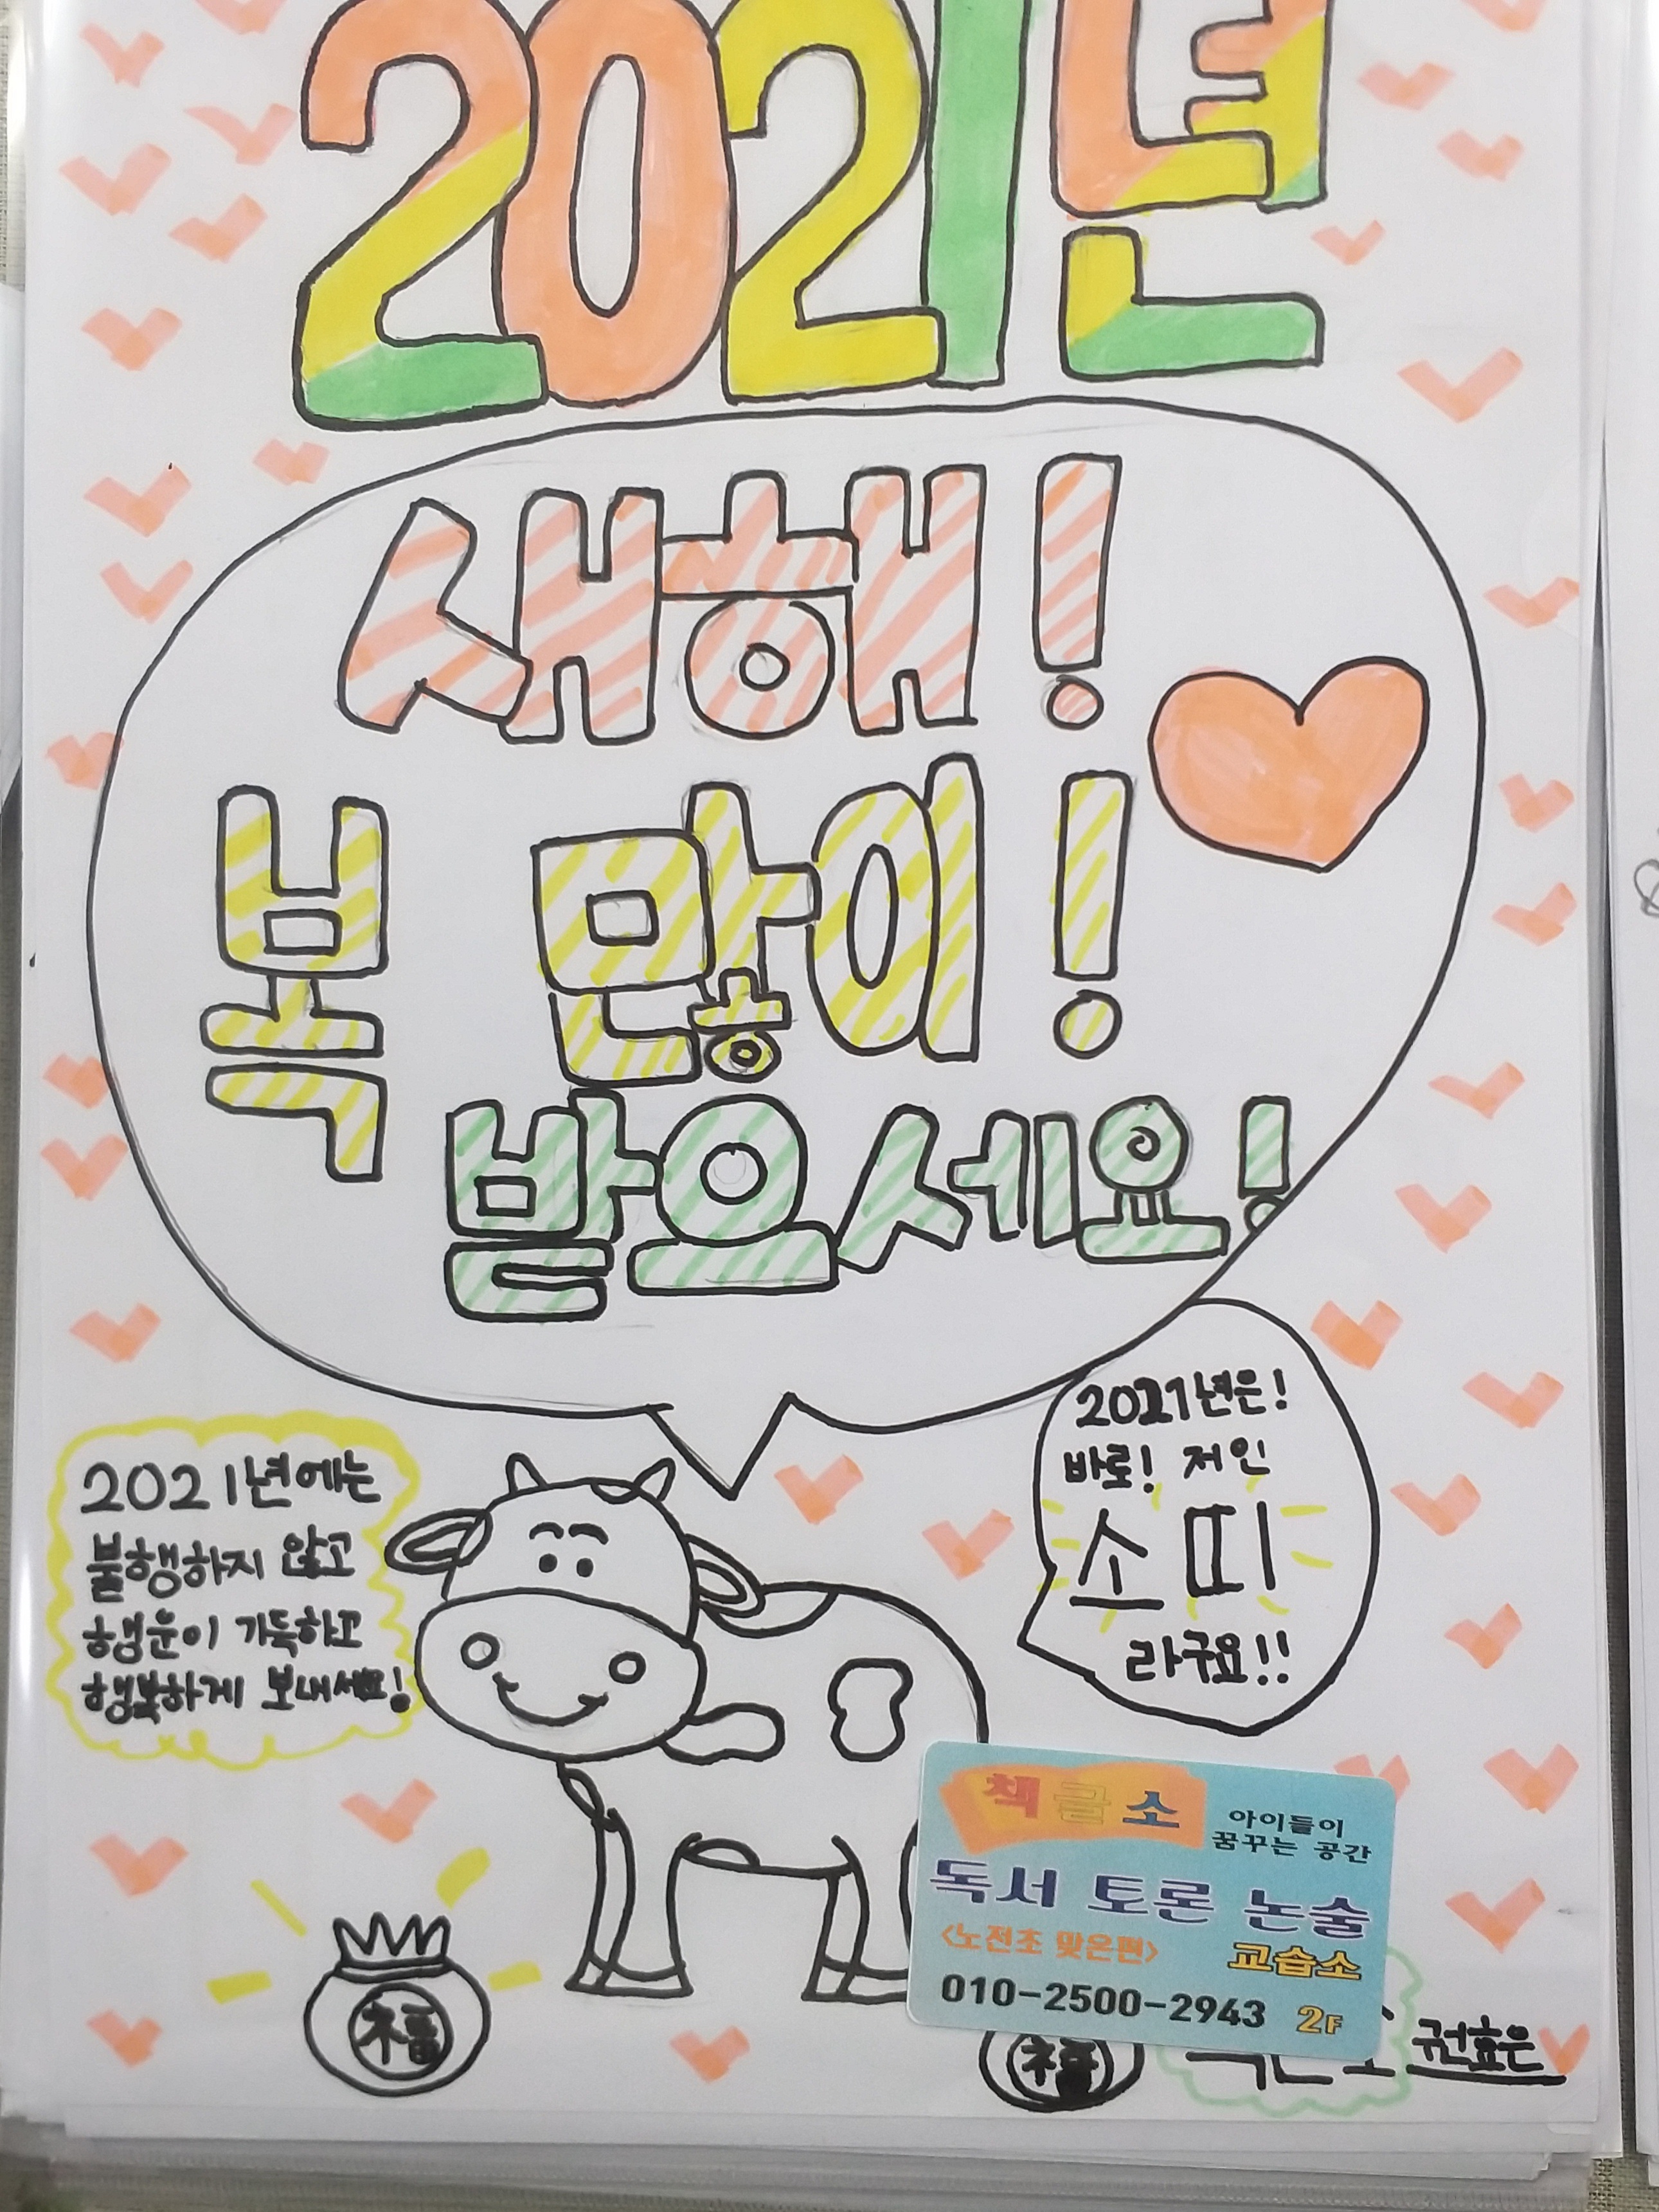 2021년
새해!
복 많이!
받으세요!
2021년은!
바로! 저인
소띠
라구요!!
2021년에는
불행하지 않고
행운이 가득하고
행복하게 보내세요!
책글소
아이들이
꿈꾸는 공간
독서 토론 논술
<노전초 맞은편>
교습소
010-2500-2943 2F
福
福
권효은